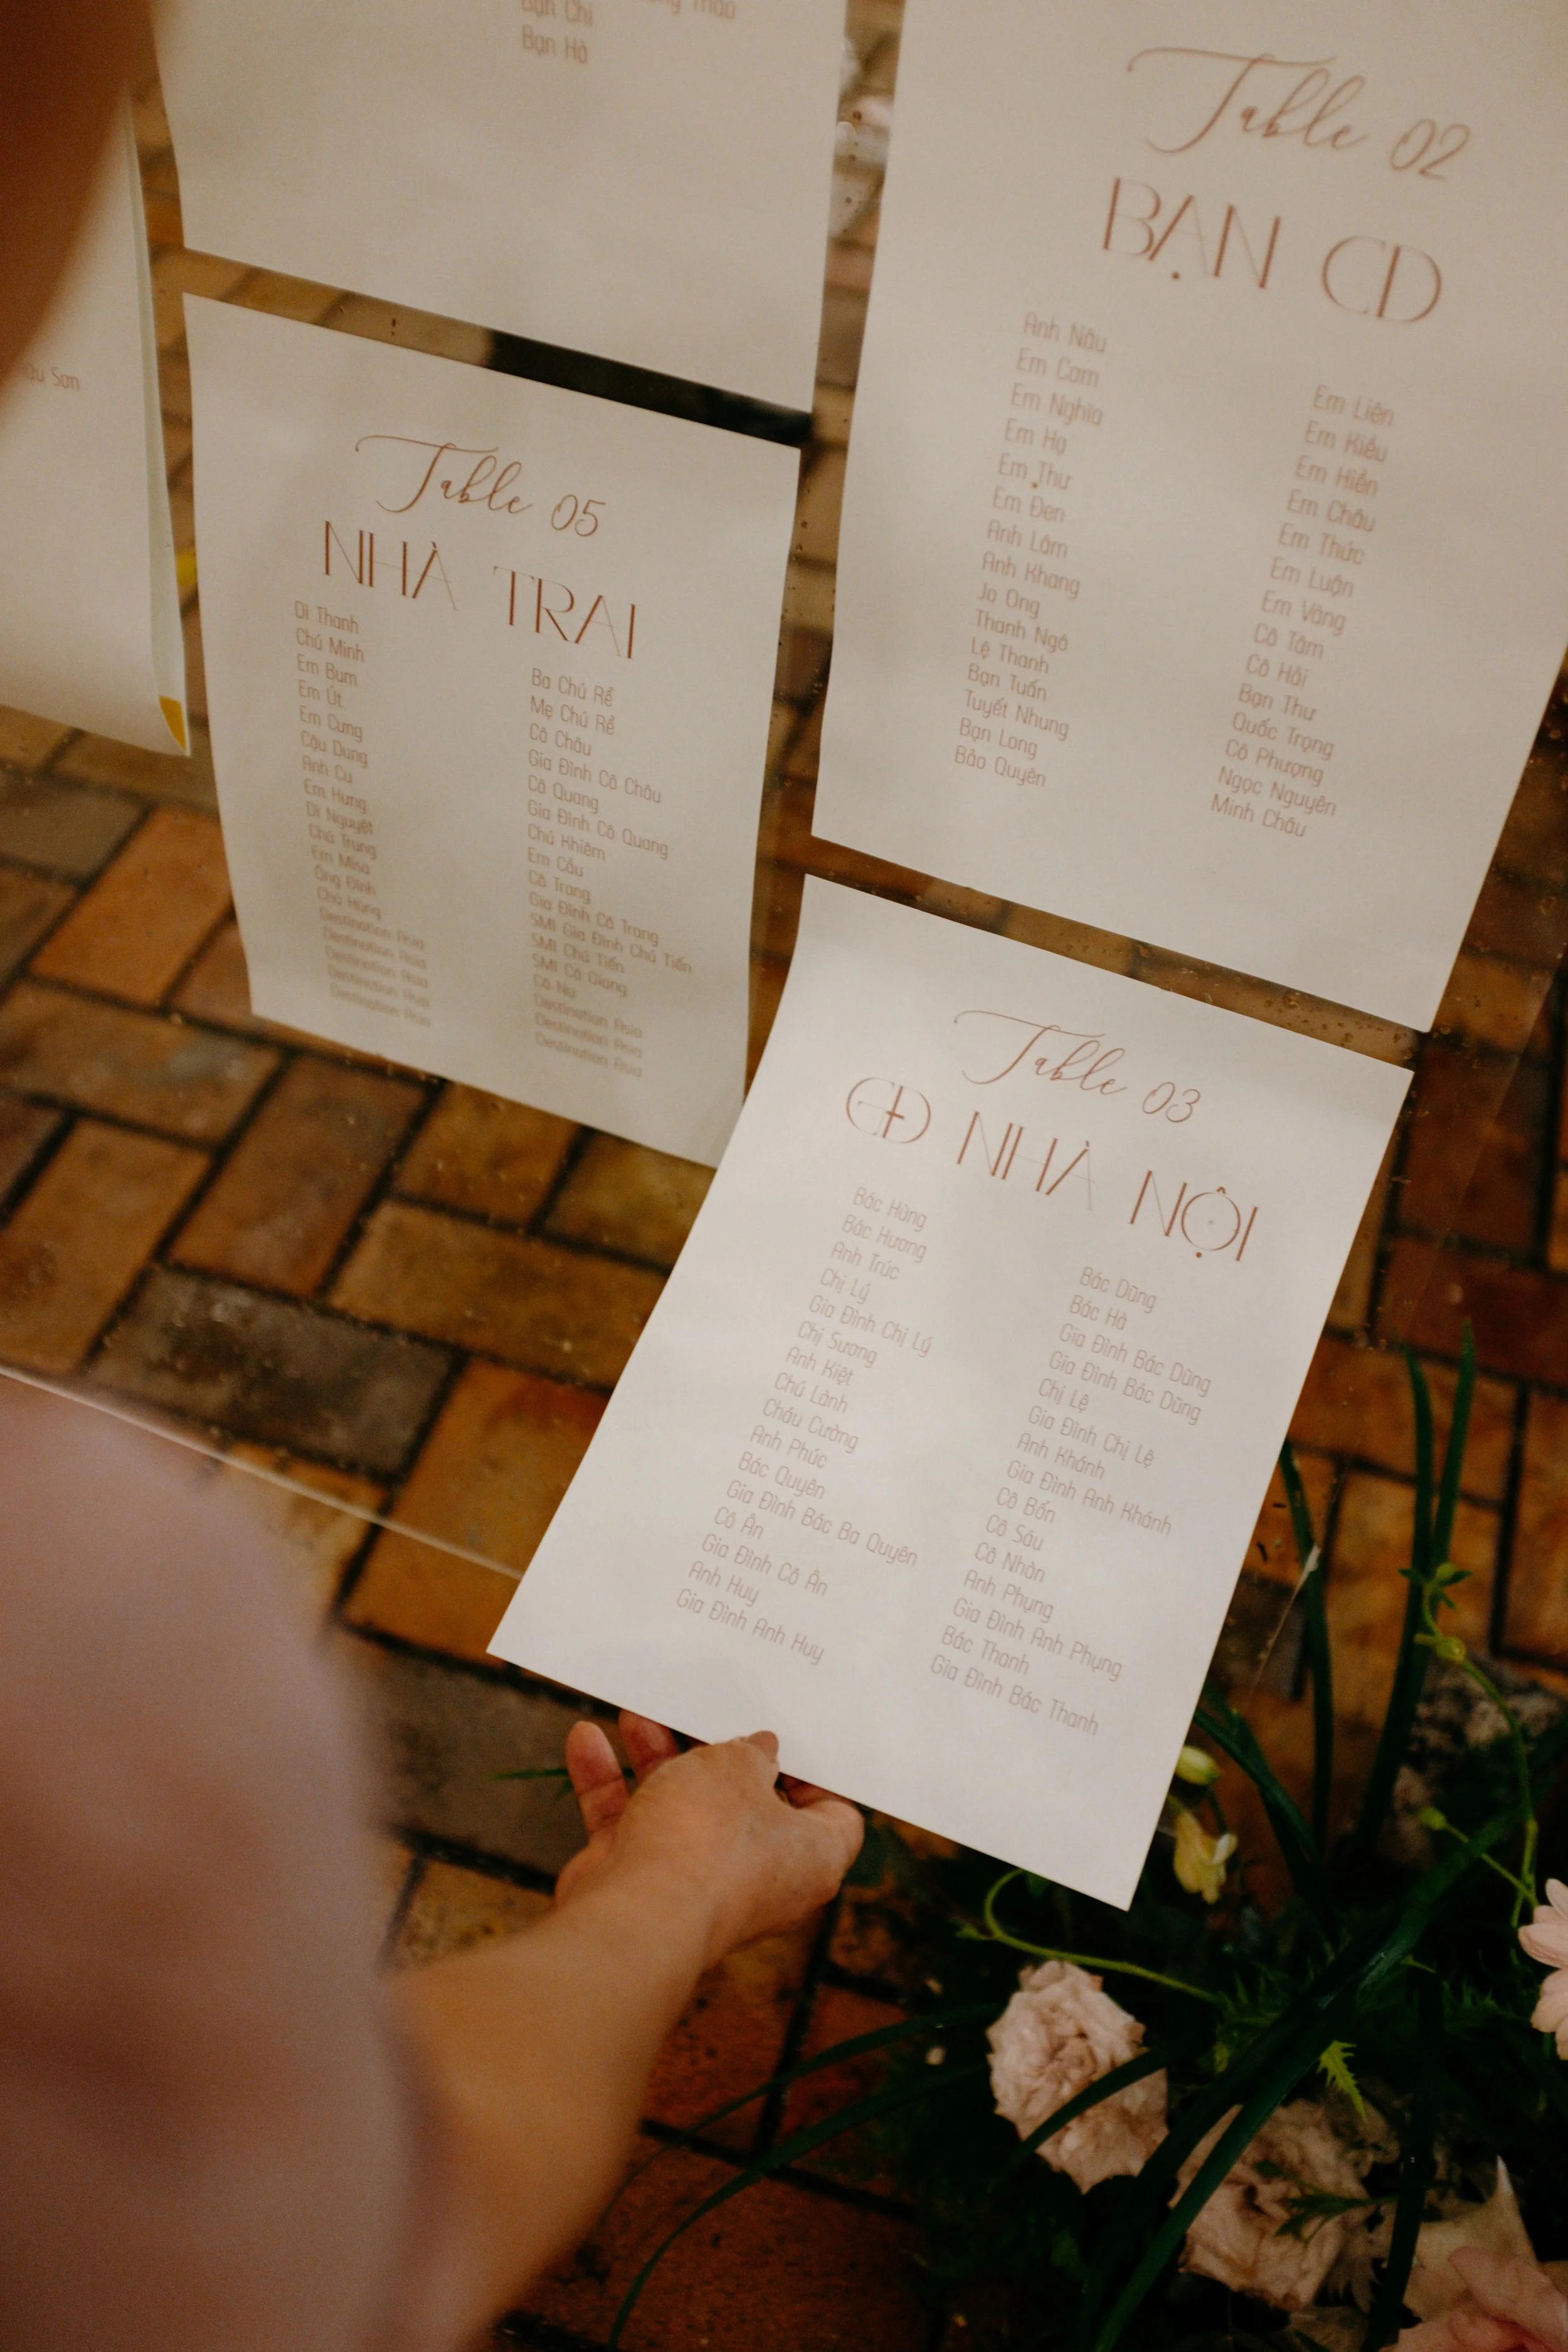 Bạn Chi
Bạn Hà
Thảo
Sơn
Table 02
BẠN CD
Anh Nâu
Em Cam
Em Nghĩa
Em Hạ
Em Thư
Em Đen
Anh Lâm
Anh Khang
Jo Ong
Thanh Ngô
Lệ Thanh
Bạn Tuấn
Tuyết Nhung
Bạn Long
Bảo Quyên
Em Liên
Em Kiều
Em Hiền
Em Châu
Em Thức
Em Luận
Em Vàng
Cô Tâm
Cô Hải
Bạn Thư
Quốc Trọng
Cô Phượng
Ngọc Nguyên
Minh Châu
Table 05
NHÀ TRAI
Dì Thanh
Chú Minh
Em Bum
Em Út
Em Cưng
Cậu Dung
Anh Cu
Em Hưng
Dì Nguyệt
Chú Trung
Em Misa
Ông Đình
Chú Hùng
Destination Asia
Destination Asia
Destination Asia
Destination Asia
Destination Asia
Ba Chú Rể
Mẹ Chú Rể
Cô Châu
Gia Đình Cô Châu
Cô Quang
Gia Đình Cô Quang
Chú Khiêm
Em Cầu
Cô Trang
Gia Đình Cô Trang
SMI Gia Đình Chú Tiến
SMI Chú Tiến
SMI Cô Giang
Cô Nu
Destination Asia
Destination Asia
Destination Asia
Table 03
GĐ NHÀ NỘI
Bác Hùng
Bác Hương
Anh Trúc
Chị Lý
Gia Đình Chị Lý
Chị Sương
Anh Kiệt
Chú Lành
Cháu Cường
Anh Phúc
Bác Quyên
Gia Đình Bác Ba Quyên
Cô Ân
Gia Đình Cô Ân
Anh Huy
Gia Đình Anh Huy
Bác Dũng
Bác Hà
Gia Đình Bác Dũng
Gia Đình Bác Dũng
Chị Lệ
Gia Đình Chị Lệ
Anh Khánh
Gia Đình Anh Khánh
Cô Bốn
Cô Sáu
Cô Nhàn
Anh Phụng
Gia Đình Anh Phụng
Bác Thanh
Gia Đình Bác Thanh